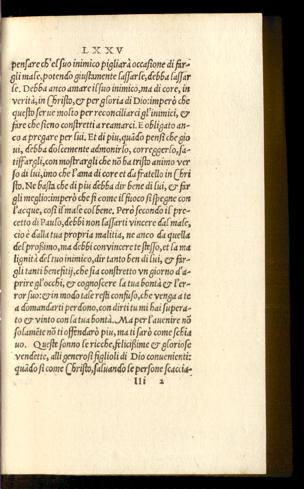 LXXV
pensare ch'el suo inimico pigliarà occasione di far-
gli male, potendo giustamente lassarse, debba lassar
se. Debba anco amare il suo inimico, ma di core, in
verità, in Christo, & per gloria di Dio: imperò che
questo serue molto per reconciliarci gl'inimici, &
fare che sieno constretti a reamarci. E obligato an-
co a pregare per lui. Et di piu, quādo pensi che gio
ui, debba dolcemente admonirlo, correggerlo, sa-
tisfargli, con mostrargli che nō ha tristo animo ver
so di lui, imo che l'ama di core et da fratello in Chri
sto. Ne basta che di piu debba dir bene di lui, & far
gli meglio: imperò che sì come il fuoco si spegne con
l'acque, così il male col bene. Però secondo il pre-
cetto di Paulo, debbi non lassarti vincere dal male,
cio è dalla tua propria malitia, ne anco da quella
del prossimo, ma debbi convincere te stesso, et la ma
lignità del tuo inimico, dir tanto ben di lui, & far-
gli tanti benefitij, che sia constretto vn giorno d'a-
prire gl'occhi, & cognoscere la tua bontà & l'er-
ror suo: & in modo tale resti confuso, che venga a te
a domandarti perdono, con dirti tu mi hai supera-
to & vinto con la tua bontà. Ma per l'auenire nō
solamēte nō ti offendarò piu, ma ti sarò come schia
uo. Queste sonno le ricche, felicissime & gloriose
vendette, alli generosi figlioli di Dio convenienti:
quādo sì come Christo, saluando le persone scaccia-
Iii 2